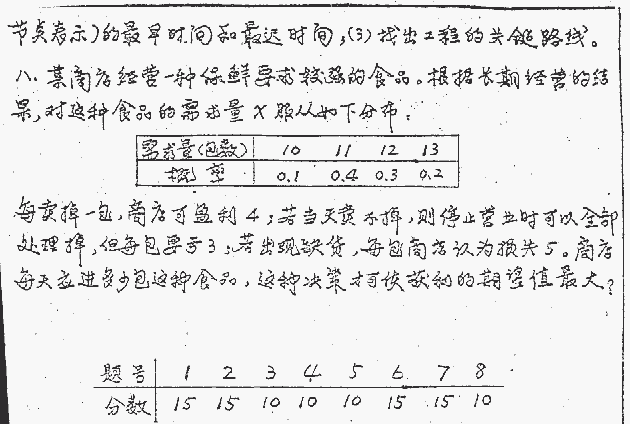 节点表示)的最早时间和最迟时间,(3)找出工程的关键路线。
八.某商店经营一种保鲜要求较强的食品。根据长期经营的结
果,对这种食品的需求量X服从如下分布:
需求量(包数) 10 11 12 13
概率 0.1 0.4 0.3 0.2
每卖掉一包,商店可盈利4;若当天卖不掉,则停止营业时可以全部
处理掉,但每包要亏3;若出现缺货,每包商店认为损失5。商店
每天应进多少包这种食品,这种决策才可使获利的期望值最大?
题号 1 2 3 4 5 6 7 8
分数 15 15 10 10 10 15 15 10